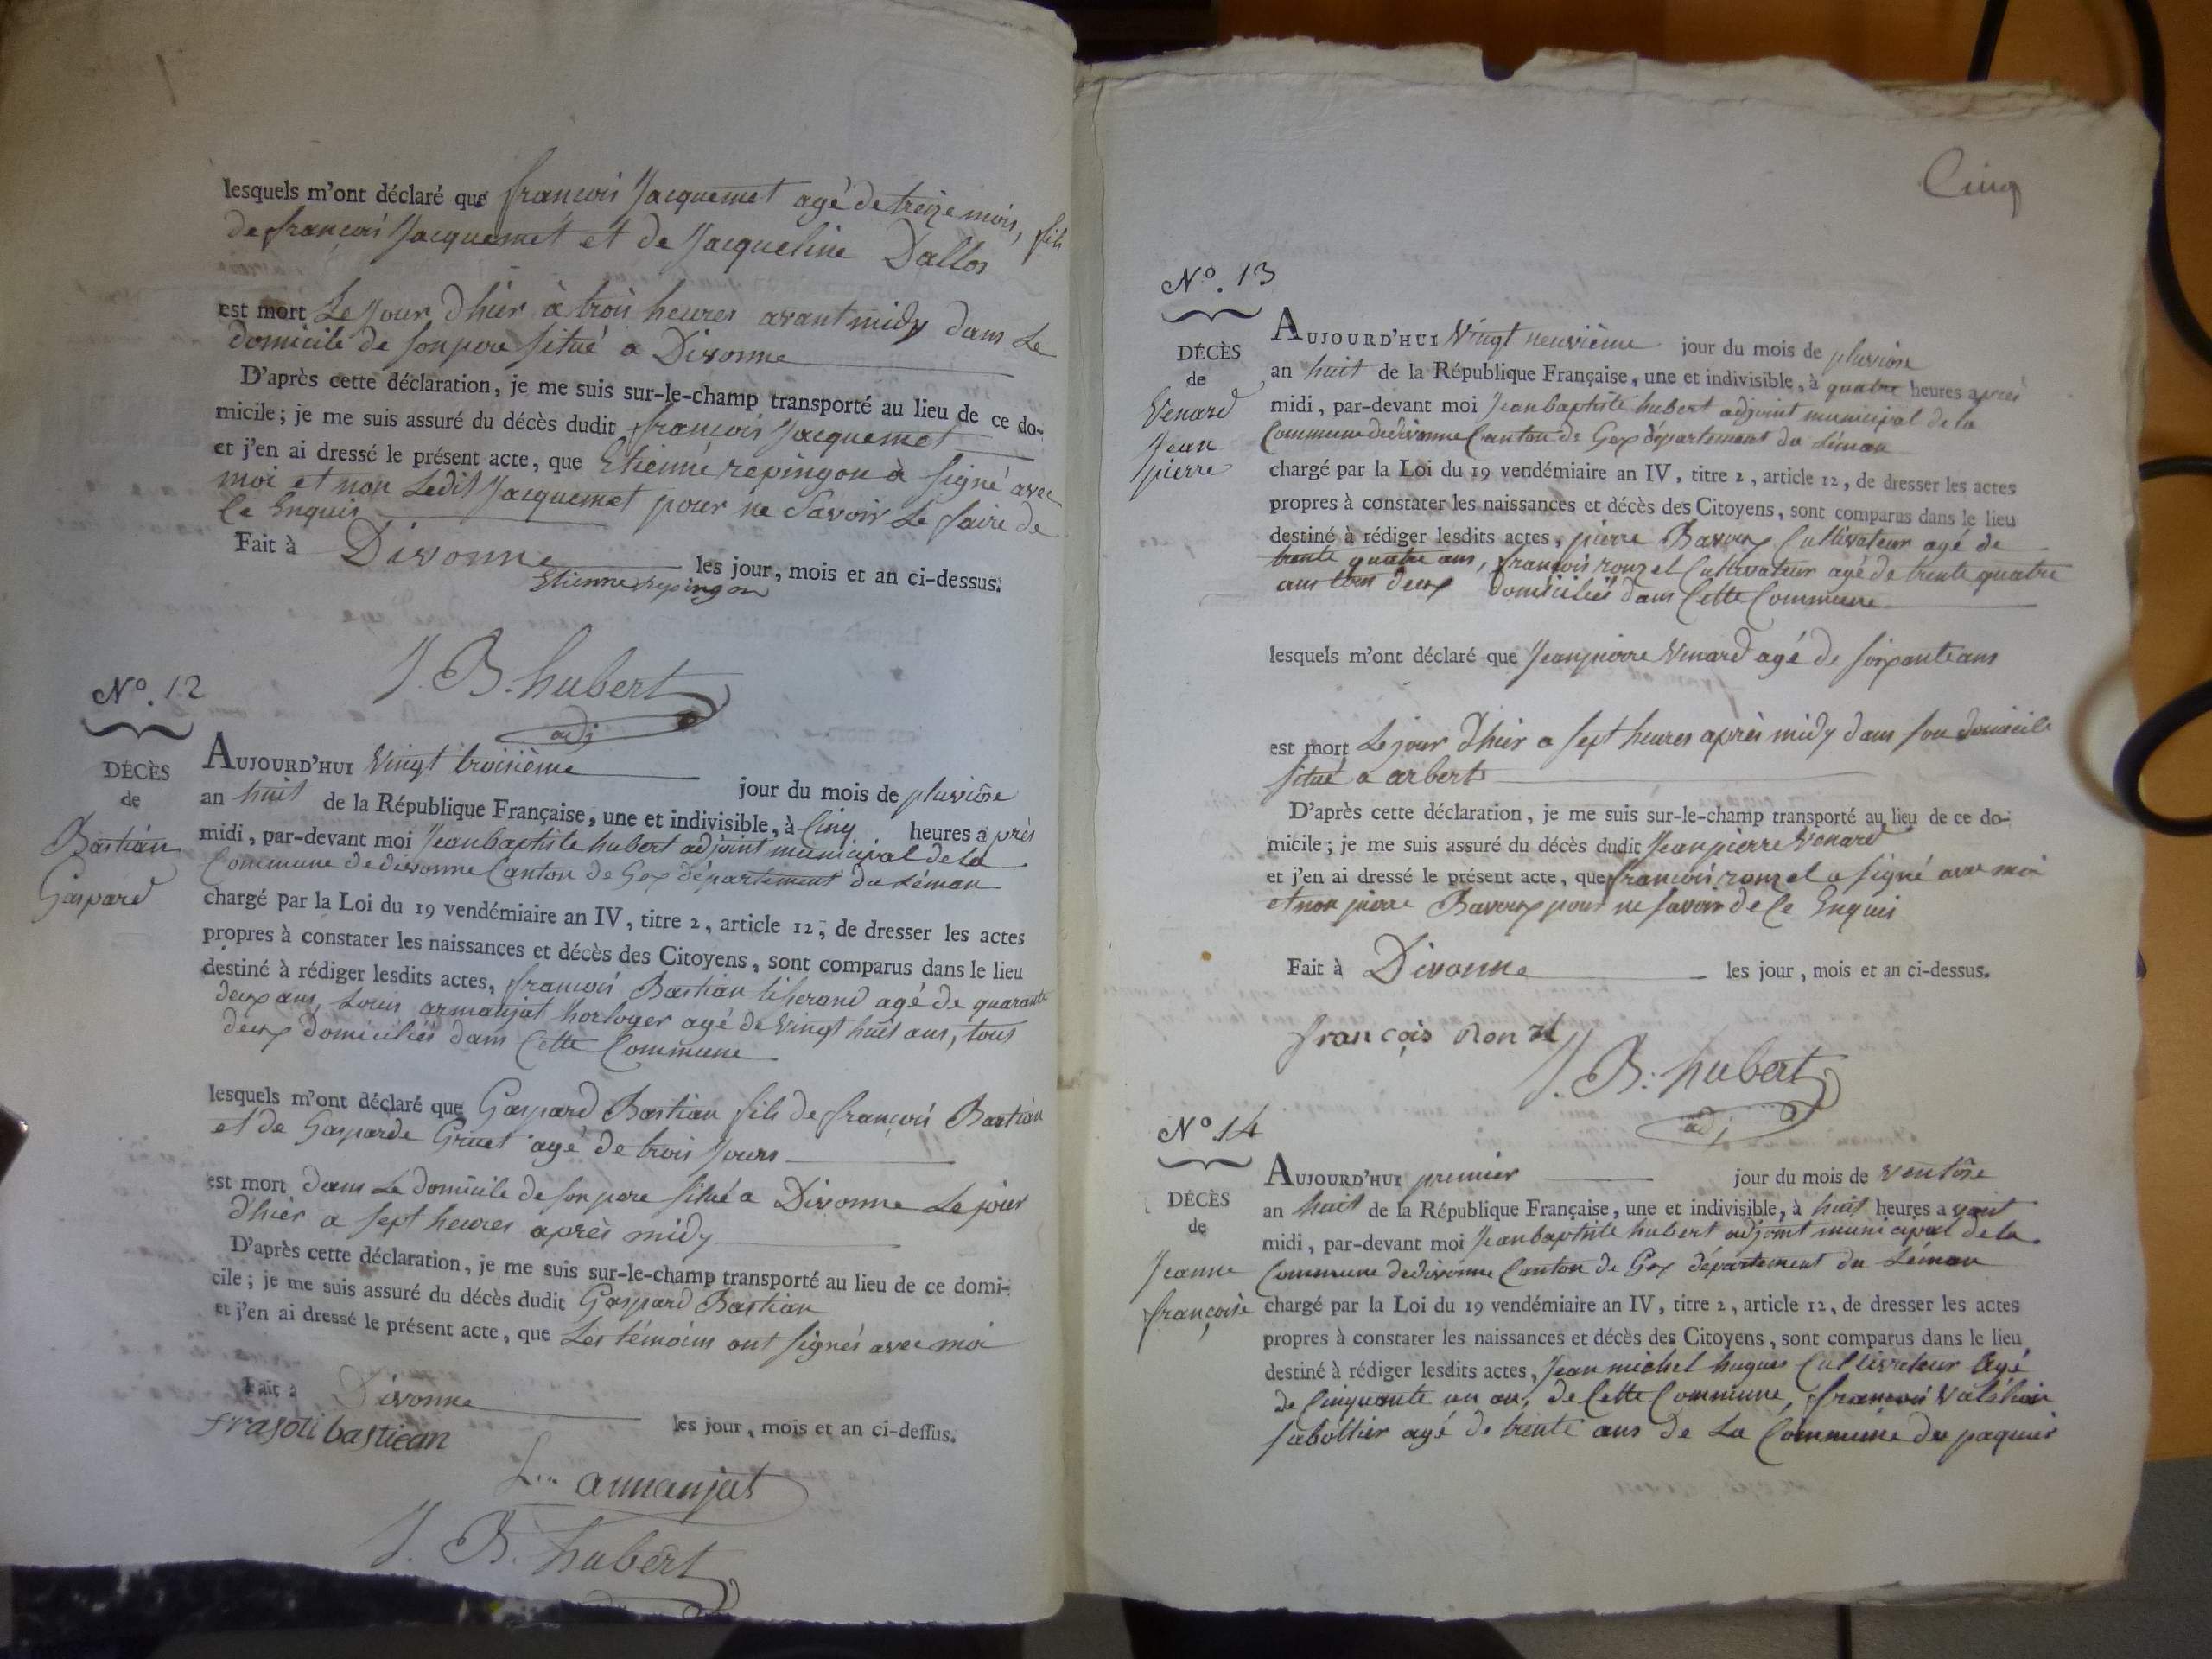 lesquels m'ont déclaré que françois Jacquemet agé de treize mois, fils
de françois Jacquemet et de Jacqueline Dallos
est mort Le jour d'hier à trois heures avant midy dans Le
domicile de son pere situé a Divonne
D'après cette déclaration, je me suis sur-le-champ transporté au lieu de ce do-
micile; je me suis assuré du décès dudit françois Jacquemet
et j'en ai dressé le présent acte, que Etienne repingon à signé avec
moi et non Ledit Jacquemet pour ne Savoir Le faire de
Ce Enquis
Fait à Divonne les jour, mois et an ci-dessus.
Etienne repingon
J. B. hubert
adj
N°. 12
DÉCÈS
de
Bastian
Gaspard
AUJOURD'HUI Vingt troisième jour du mois de pluviôse
an huit de la République Française, une et indivisible, à Cinq heures après
midi, par-devant moi Jean baptiste hubert adjoint municipal de la
Commune de divonne Canton de Gex département du Léman
chargé par la Loi du 19 vendémiaire an IV, titre 2, article 12, de dresser les actes
propres à constater les naissances et décès des Citoyens, sont comparus dans le lieu
destiné à rédiger lesdits actes, françois Bastian tiherand agé de quarante
deux ans, Louis armanjat horloger agé de Vingt huit ans, tous
deux domiciliés dans Cette Commune
lesquels m'ont déclaré que Gaspard Bastian fils de françois Bastian
et de Gasparde Gruet agé de trois jours
est mort dans Le domicile de son pere situé a Divonne Le jour
d'hier a sept heures après midy
D'après cette déclaration, je me suis sur-le-champ transporté au lieu de ce domi-
cile; je me suis assuré du décès dudit Gaspard Bastian
et j'en ai dressé le présent acte, que Les témoins ont signés avec moi
Fait à Divonne les jour, mois et an ci-dessus.
frasoti bastiean
armanjat
J. B. hubert
Cinq
N°. 13
DÉCÈS
de
Venard
Jean
pierre
AUJOURD'HUI Vingt neuvième jour du mois de pluviose
an huit de la République Française, une et indivisible, à quatre heures après
midi, par-devant moi Jean baptiste hubert adjoint municipal de la
Commune de divonne Canton de Gex département du Léman
chargé par la Loi du 19 vendémiaire an IV, titre 2, article 12, de dresser les actes
propres à constater les naissances et décès des Citoyens, sont comparus dans le lieu
destiné à rédiger lesdits actes, pierre Bavoux Cultivateur agé de
trente quatre ans, françois ronzel Cultivateur agé de trente quatre
ans tous deux domiciliés dans Cette Commune
lesquels m'ont déclaré que Jean pierre Venard agé de soixante ans
est mort Le jour d'hier a sept heures après midy dans son domicile
situé a arberts
D'après cette déclaration, je me suis sur-le-champ transporté au lieu de ce do-
micile; je me suis assuré du décès dudit Jean pierre Venard
et j'en ai dressé le présent acte, que françois ronzel a signé avec moi
et non pierre Bavoux pour ne savoir de Ce Enquis
Fait à Divonne les jour, mois et an ci-dessus.
françois Ronzel
J. B. hubert
adj
N° 14
DÉCÈS
de
Jeanne
françoise
AUJOURD'HUI premier jour du mois de Ventôse
an huit de la République Française, une et indivisible, à huit heures avant
midi, par-devant moi Jean baptiste hubert adjoint municipal de la
Commune de divonne Canton de Gex département du Léman
chargé par la Loi du 19 vendémiaire an IV, titre 2, article 12, de dresser les actes
propres à constater les naissances et décès des Citoyens, sont comparus dans le lieu
destiné à rédiger lesdits actes, Jean michel hugues Cultivateur Agé
de Cinquante un an, de Cette Commune, françois
sabottier agé de trente ans de La Commune du paquier